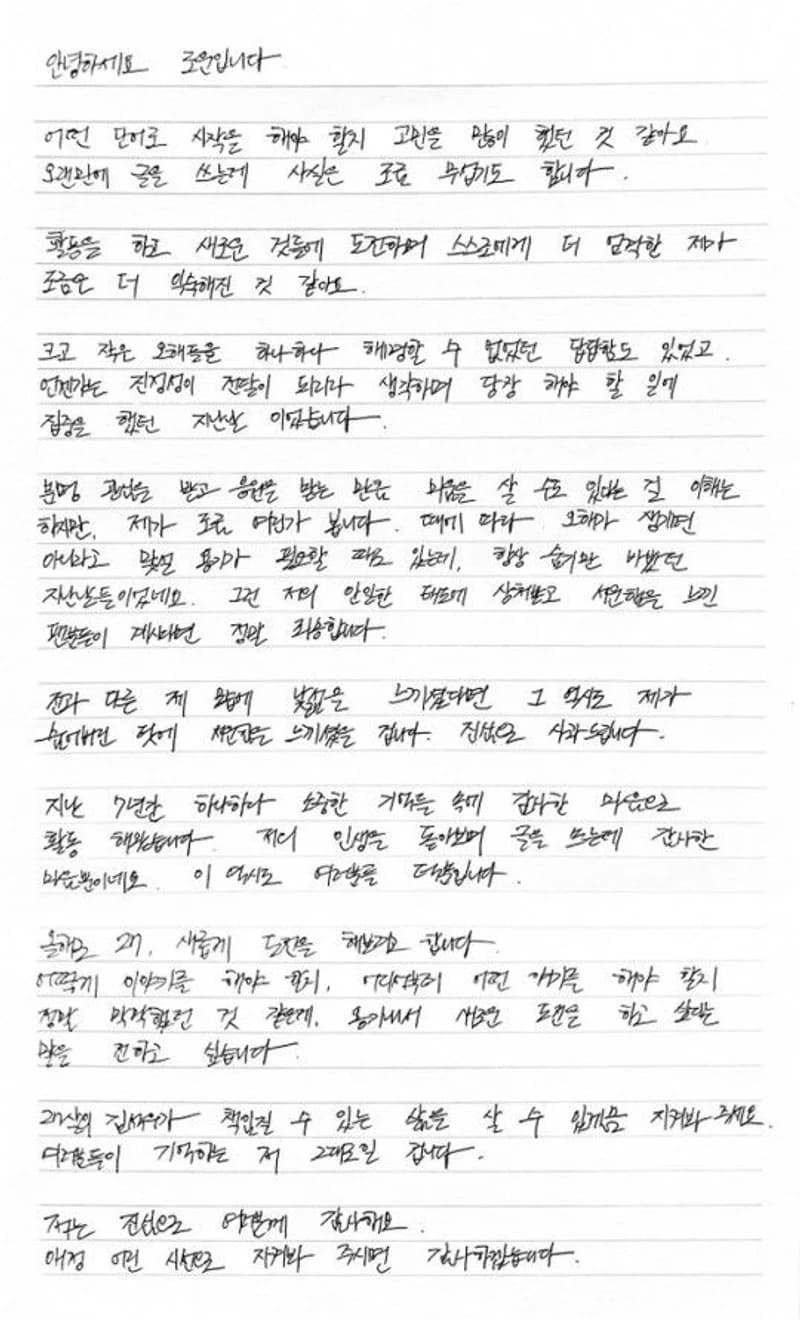 안녕하세요 로운입니다
어떤 단어로 시작을 해야 할지 고민을 많이 했던 것 같아요
오랜만에 글을 쓰는데 사실은 조금 무섭기도 합니다.
활동을 하고 새로운 것들에 도전하며 스스로에게 더 엄격한 제가
조금은 더 익숙해진 것 같아요.
크고 작은 오해들을 하나하나 해명할 수 없었던 답답함도 있었고.
언젠가는 진정성이 전달이 되리라 생각하며 당장 해야 할 일에
집중을 했던 지난날 이었습니다.
분명 관심을 받고 응원을 받는 만큼 미움을 살 수도 있다는 걸 이해는
하지만, 제가 조금 여린가 봅니다. 때에 따라 오해가 생기면
아니라고 맞설 용기가 필요할 때도 있는데, 항상 숨기만 바빴던
지난날들이었네요. 그런 저의 안일한 태도에 상처받고 서운함을 느낀
팬분들이 계시다면 정말 죄송합니다.
전과 다른 제 모습에 낯섦을 느끼셨다면 그 역시도 제가
숨어버린 탓에 서운함을 느끼셨을 겁니다. 진심으로 사과드립니다.
지난 7년간 하나하나 소중한 기억들 속에 감사한 마음으로
활동 해왔습니다. 저의 인생을 돌아보며 글을 쓰는데 감사한
마음뿐이네요. 이 역시도 여러분들 덕분입니다.
올해로 27, 새롭게 도전을 해보려고 합니다.
어떻게 이야기를 해야 할지, 어디서부터 어떤 얘기를 해야 할지
정말 막막했던 것 같은데, 용기내서 새로운 도전을 하고 싶다는
말을 전하고 싶습니다.
27살의 김석우가 책임질 수 있는 삶을 살 수 있게끔 지켜봐 주세요.
여러분들이 기억하는 저 그대로일 겁니다.
저는 진심으로 여러분께 감사해요.
애정 어린 시선으로 지켜봐 주시면 감사하겠습니다.